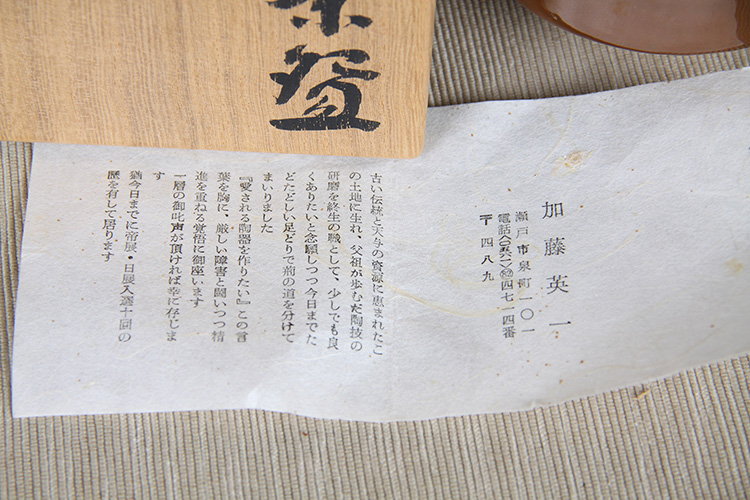 茶盌
加藤英一
瀬戸市泉町一〇一
電話〈〇五六一〉㉒四七一四番
〒四八九
古い伝統と天与の資源に恵まれたこ
の土地に生れ、父祖が歩むだ陶技の
研磨を終生の職として、少しでも良
くありたいと念願しつつ今日までた
どたどしい足どりで荊の道を分けて
まいりました
『愛される陶器を作りたい』この言
葉を胸に、厳しい障害と闘いつつ精
進を重ねる覚悟に御座います
一層の御叱声が頂ければ幸に存じま
す
猶今日までに帝展・日展入選十回の
歴を有して居ります